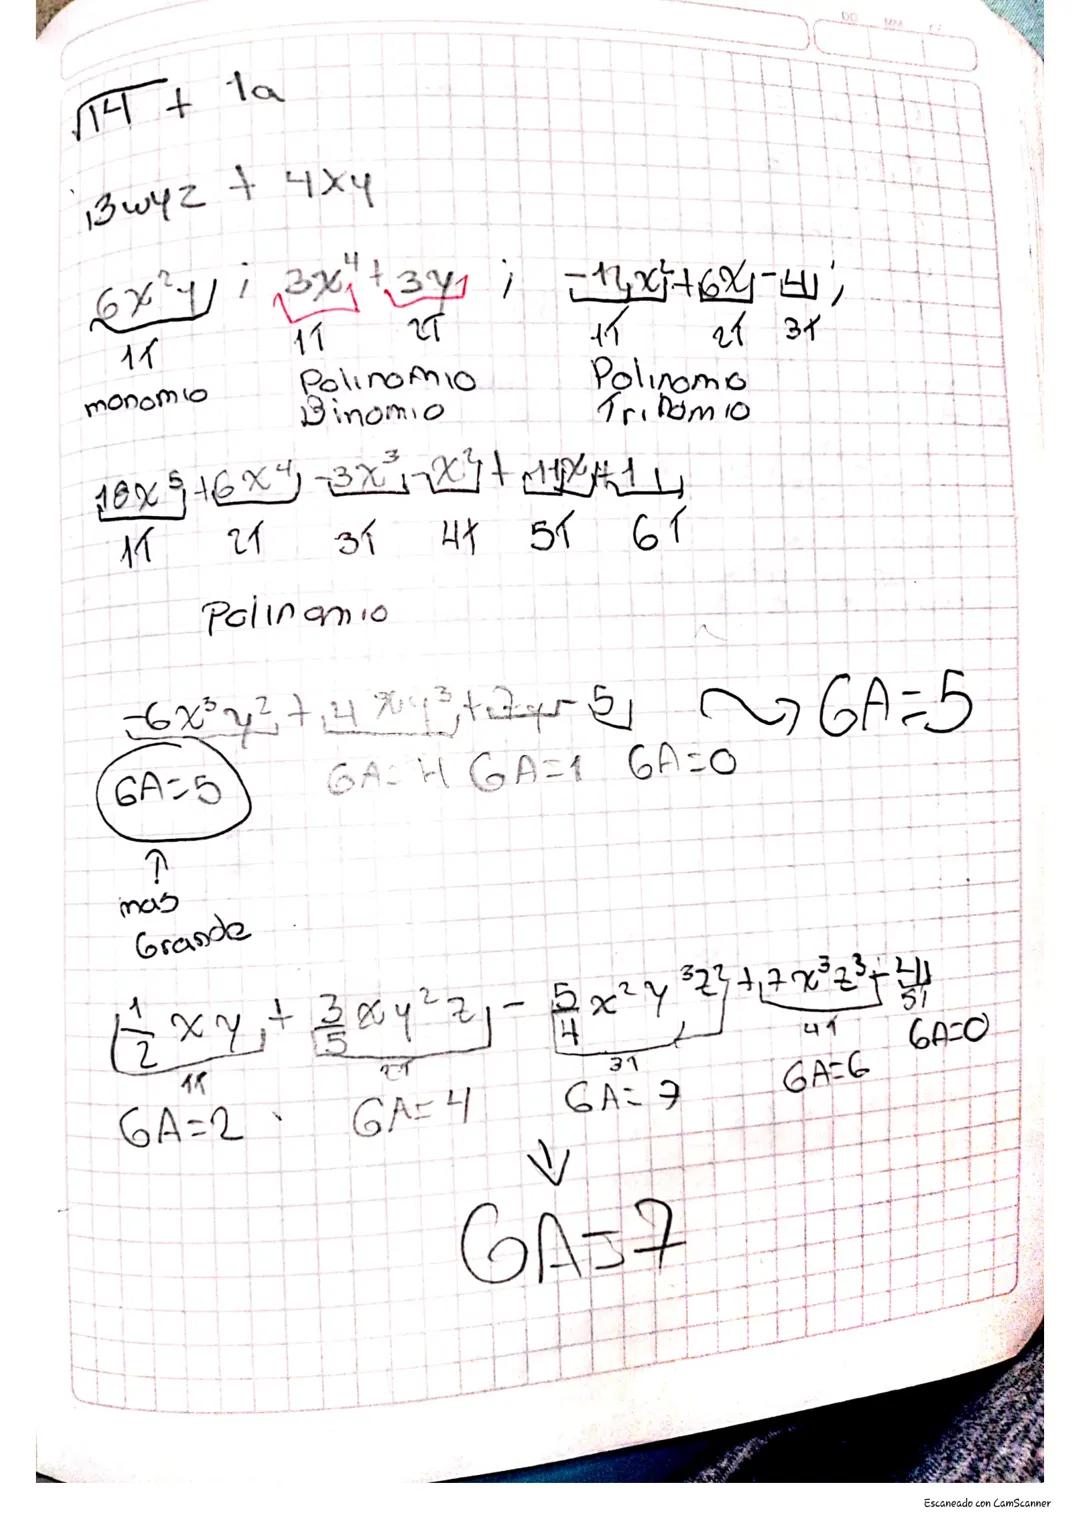 √14 + 1a
13wyz + 4xy
6x²y ; 3x⁴ + 3y ; -12x² + 6x - 4 ;
1T 1T 2T 1T 2T 3T
monomio Polinomio Polinomo
Binomio Trinomio
18x⁵ + 6x⁴ - 3x³ - x² + 11x + 1
1T 2T 3T 4T 5T 6T
Polinomio
-6x³y² + 4xy³ + 7y - 5 → GA=5
GA=5 GA=4 GA=1 GA=0
↑
mas
Grande
1/2 xy + 3/5 xy²z - 5/4 x²y³z² + 7x³z³ + 4
1T 2T 3T 4T 5T
GA=2 GA=4 GA=7 GA=6 GA=0
↓
GA=7
Escaneado con CamScanner